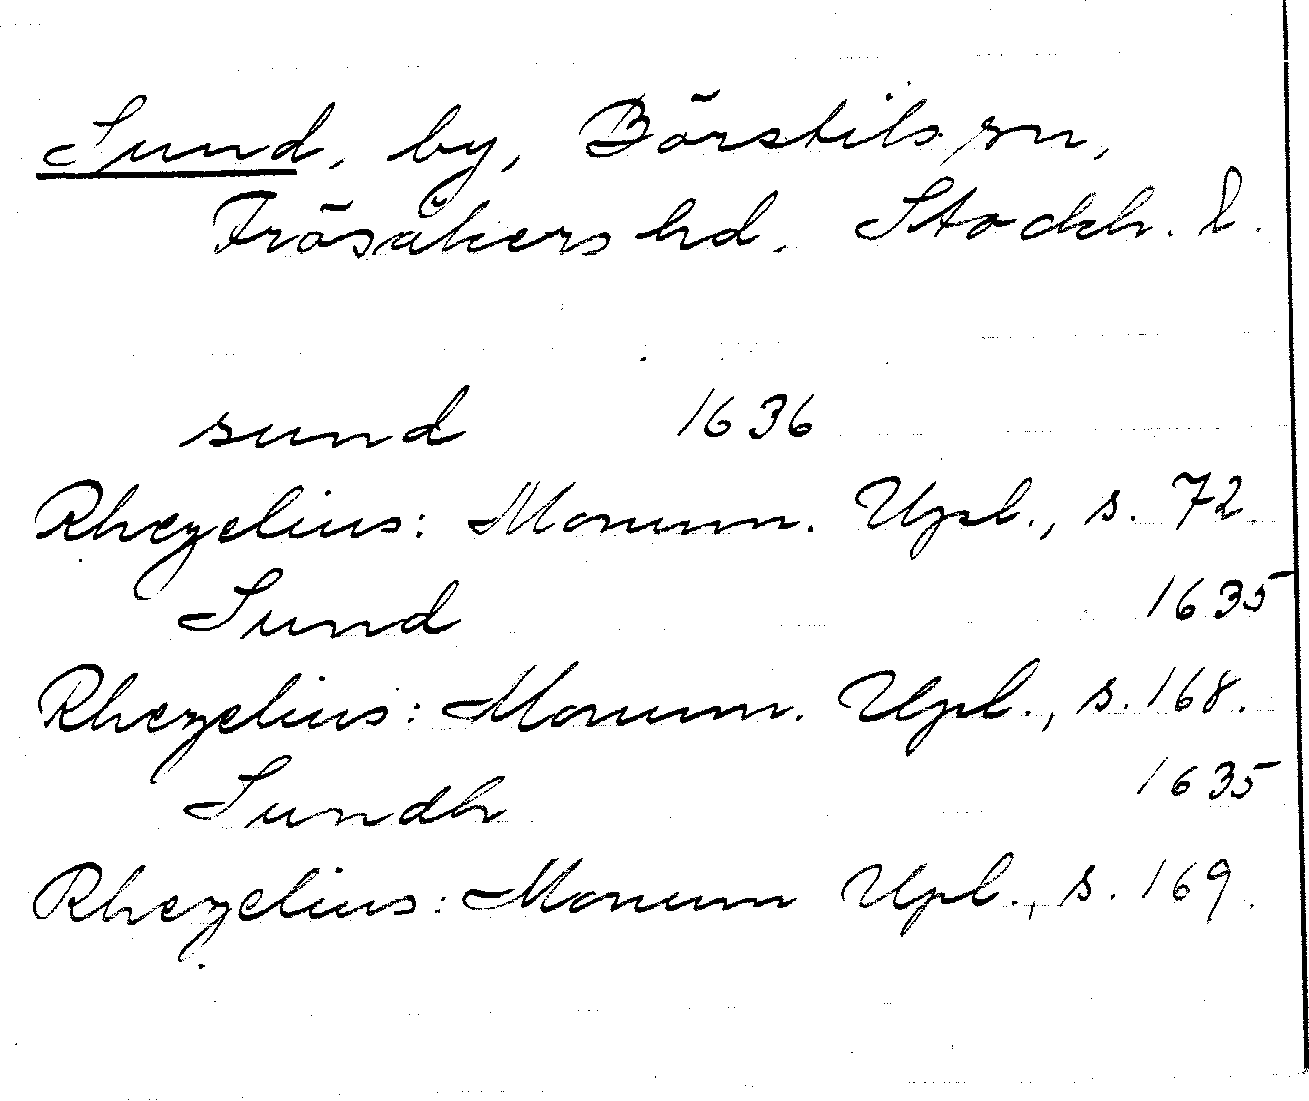 Sund, by, Börstils sn,
Frösåkers hd. Stockh. l.
sund 1636
Rhezelius: Monum. Upl., s. 72.
Sund 1635
Rhezelius: Monum. Upl., s. 168.
Sundh 1635
Rhezelius: Monum Upl., s. 169.